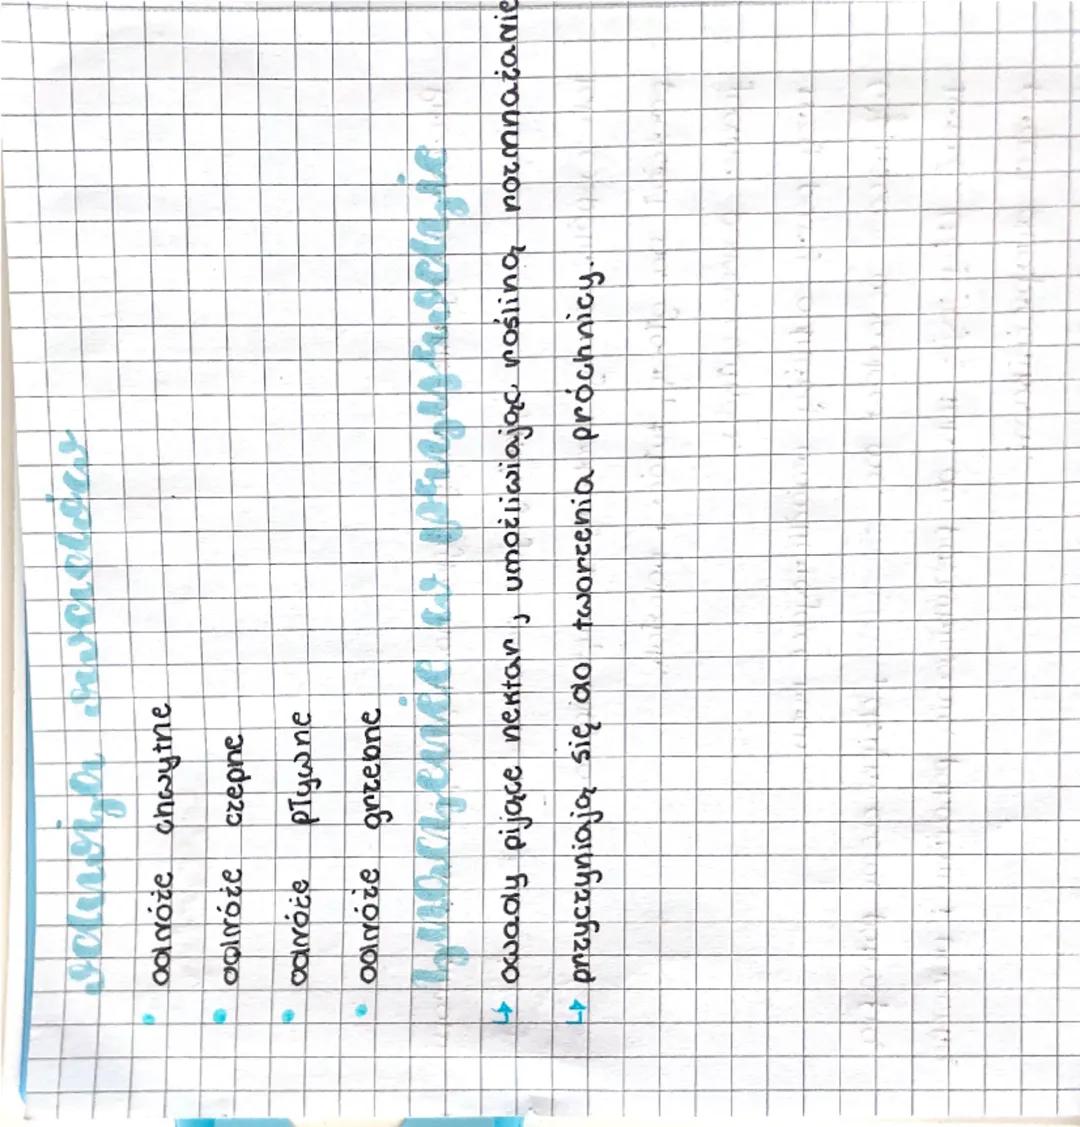 odnóża owadów
odnóże chwytne
odnóże czepne
odnóże pływne
odnóże grzebne
znaczenie w przyrodzie
↳ owady pijące nektar, umożliwiając rośliną rozmnażanie
↳ przyczyniają się do tworzenia próchnicy.